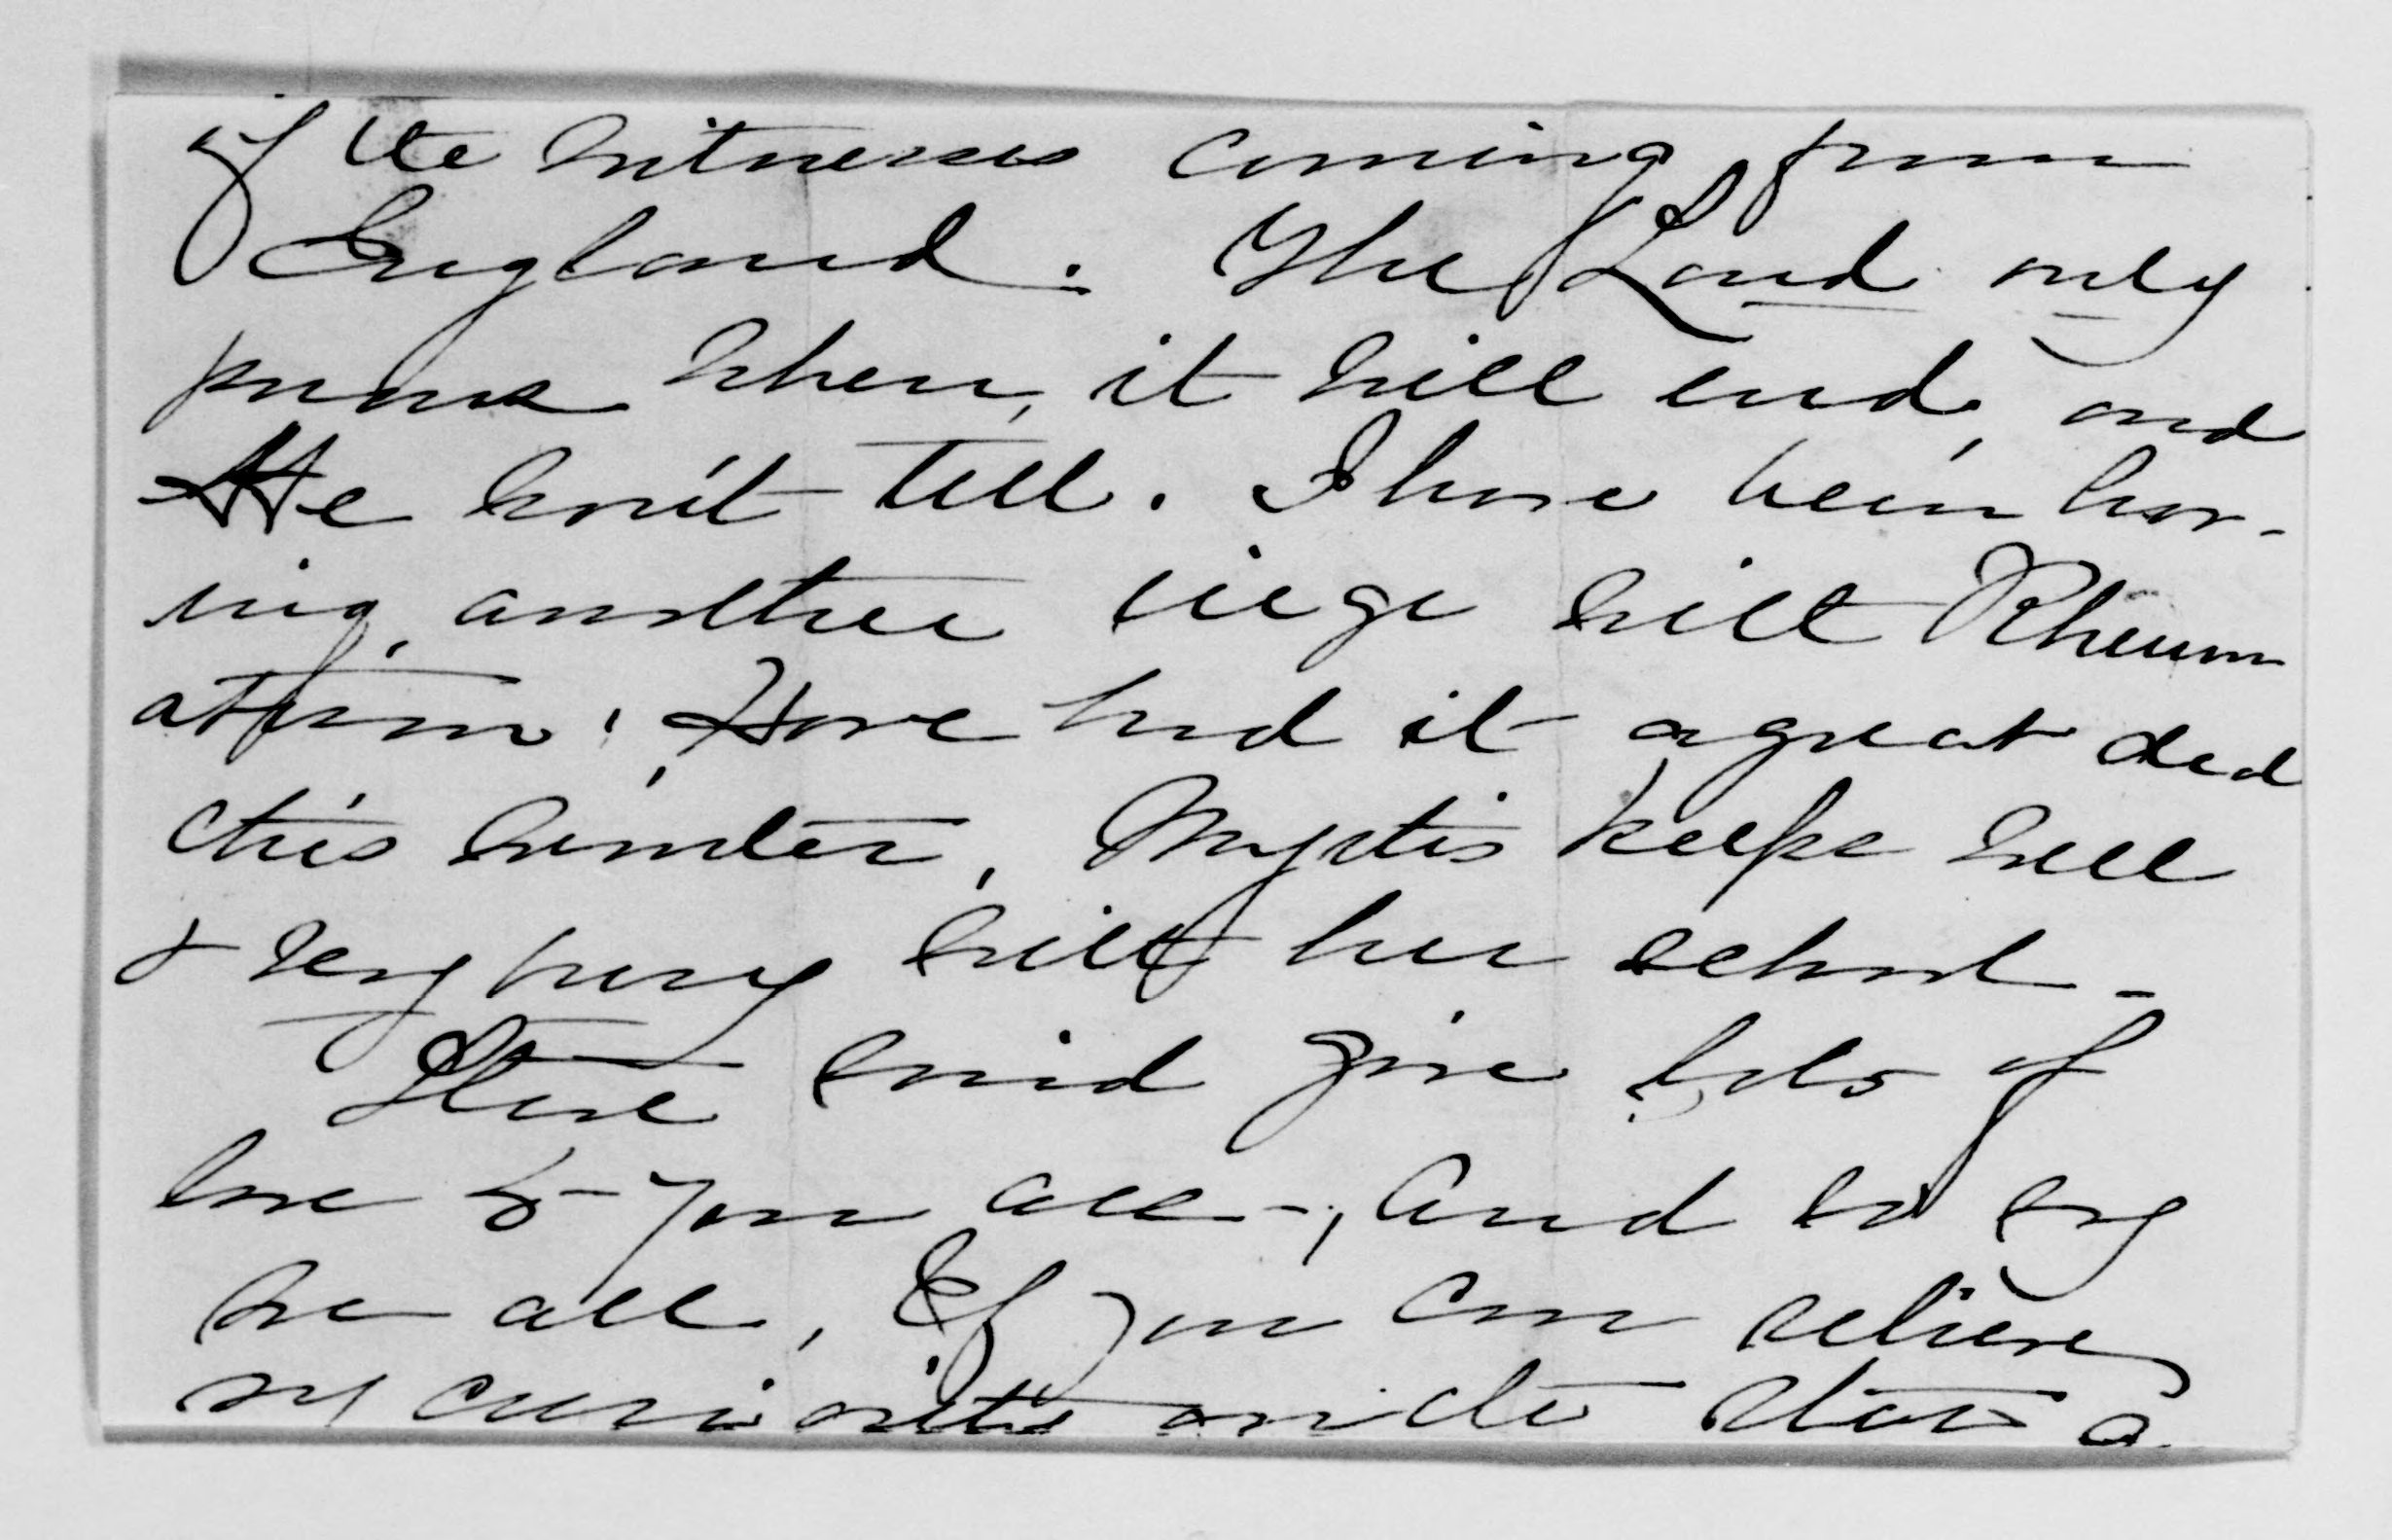 of the witnesses coming from
England. The Lord only
knows when it will end, and
He won't tell. I have been hav-
ing another siege with Rheum
atism. Have had it a great deal
this winter. Myrtis keeps well
& very busy with her school -
Steve said give lots of
love to you all -, and so say
we all. If you can relieve
my curiosity